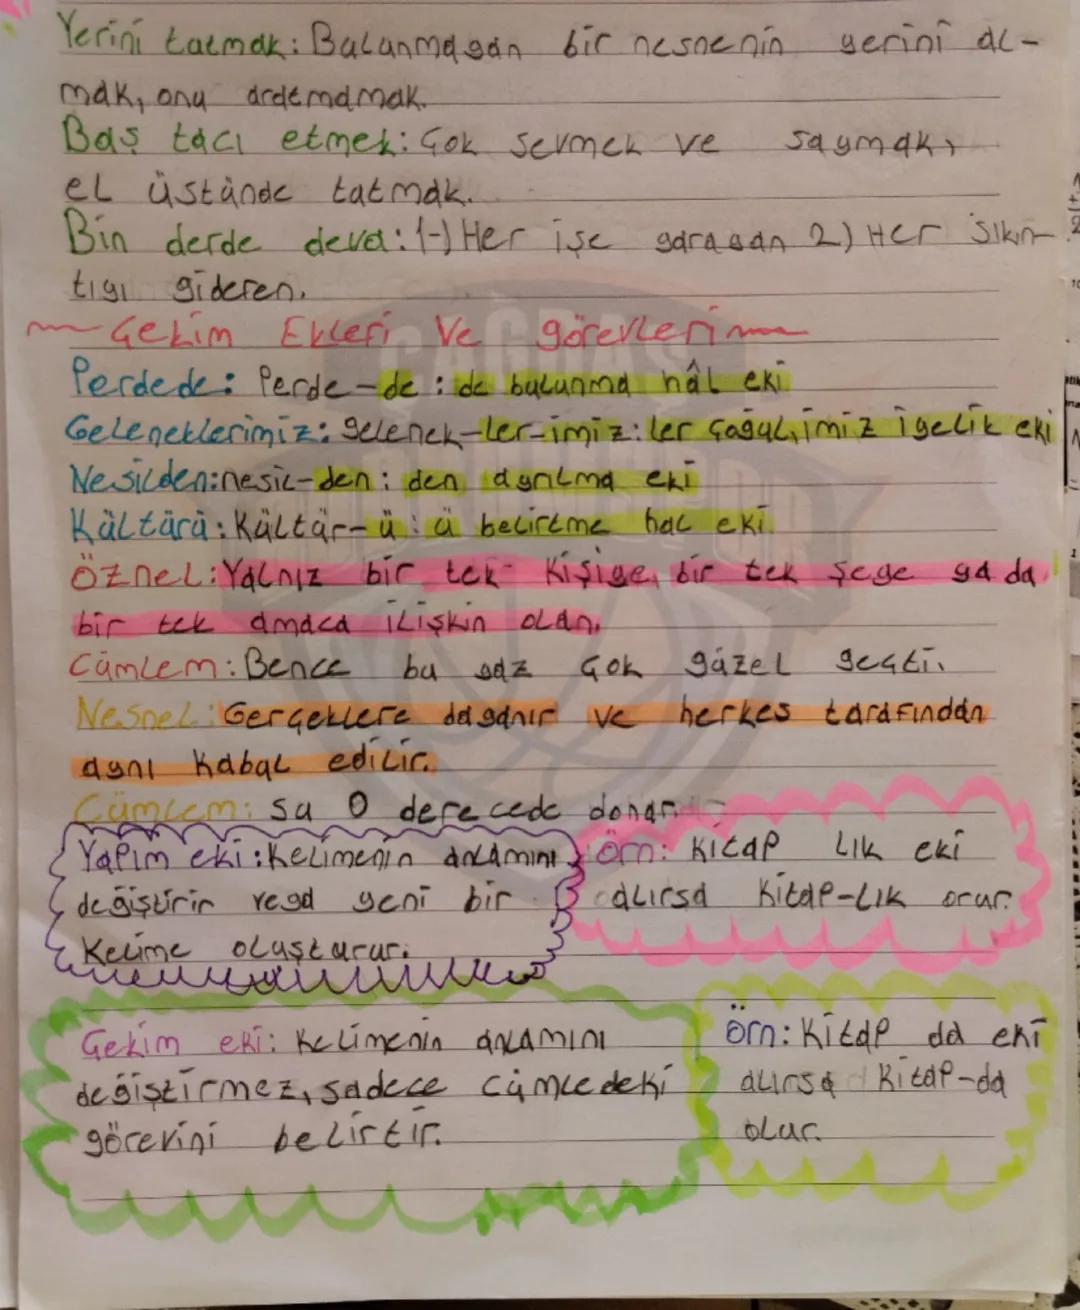 Yerini tutmak: Bulunmayan bir nesnenin yerini al-
mak, onu aratmamak.
Baş tacı etmek: Çok sevmek ve saymak,
el üstünde tutmak.
Bin derde deva: 1-) Her işe yarayan 2) Her sıkın-
tıyı gideren.
Çekim Ekleri Ve görevleri
Perdede: Perde-de: de bulunma hâl eki
Geleneklerimiz: gelenek-ler-imiz: ler çoğul, imiz iyelik eki
Nesilden: nesil-den: den ayrılma eki
Kültürü: Kültür-ü: ü belirtme hal eki
Öznel: Yalnız bir tek kişiye, bir tek şeye ya da
bir tek amaca ilişkin olan.
Cümlem: Bence bu yaz çok güzel geçti.
Nesnel: Gerçeklere dayanır ve herkes tarafından
aynı kabul edilir.
Cümlem: Su 0 derecede donar.
Yapım eki: Kelimenin anlamını
değiştirir veya yeni bir
Kelime oluşturur.
Örn: Kitap lık eki
alırsa Kitap-lık olur.
Çekim eki: Kelimenin anlamını
değiştirmez, sadece cümledeki
görevini belirtir.
Örn: Kitap da eki
alırsa Kitap-da
olur.